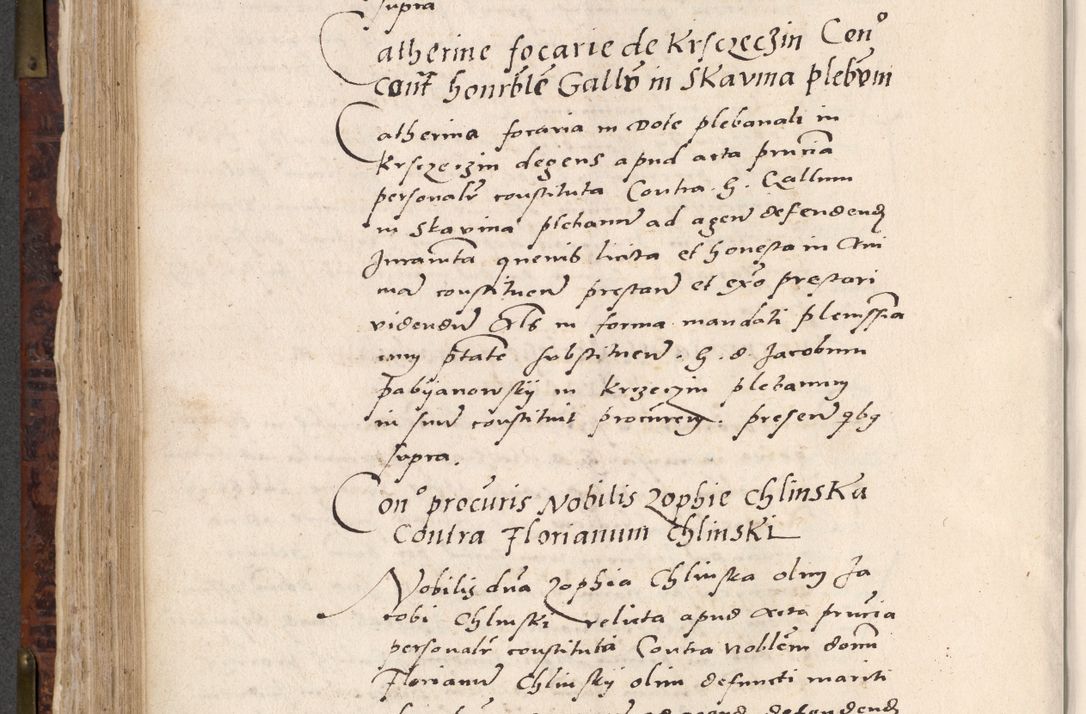 supra
Catherine focarie de Krsczeczin Con°
cont honrble Gallu in Skavina plebvm
Catherina focaria in Dote plebanali in
Krsczeczin degens apud acta prncia
personalr constituta Contra h. Gallum
in Skavina plebanu ad agen defendend
Juramta quevis licita et honesta in Ani
ma constituen prestan et exo prestari
videndu Ctis in forma mandati plenissia
cum ptate substituen. h. d. Jacobum
Pabijanowskij in Krzeczin plebanum
in suu constituit procurem. presen qbg
supra.
Con° procuris Nobilis Zophie Chlinska
Contra Florianum Chlinski
Nobilis dna Zophia Chlinska olim Ja
cobi Chlinski relicta apud Acta prncia
personalr constituta Contra noblem domi
Florianu Chlinskij olim defuncti mariti
ad agend defendend